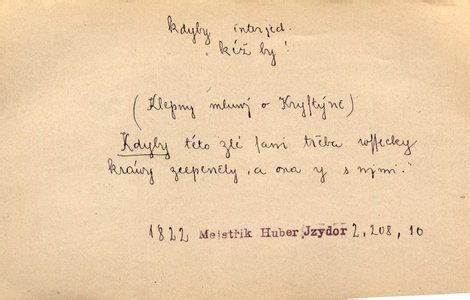 kdyby interjed.
kéž by!
(Klepny mluwj o Kryštýně)
Kdyby této zlé panj třeba wssecky
kráwy zcepeněly, a ona y s njmi."
1822 Mejstřík Huber Jzydor 2, 208, 10